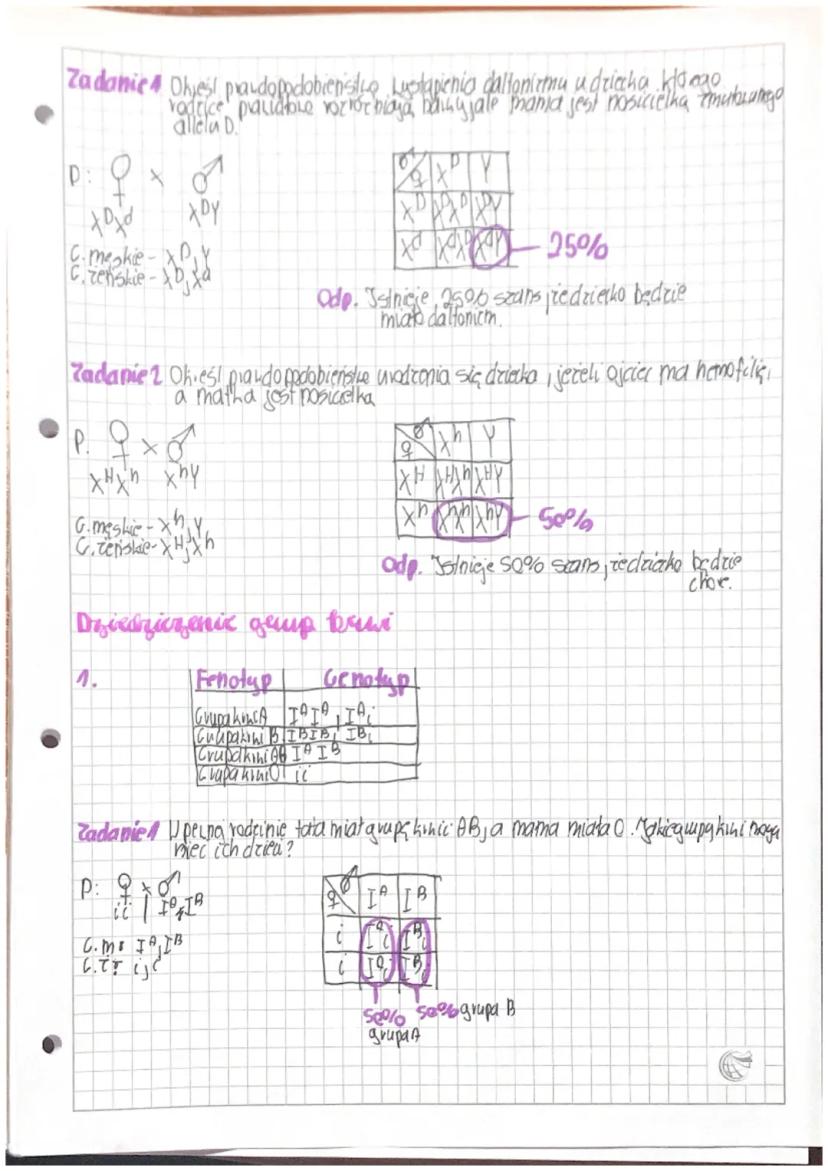 Zadanie 1 Określ prawdopodobieństwo wystąpienia daltonizmu u dziecka którego
rodzice prawidłowo rozróżniają barwy, ale mama jest nosicielką zmutowanego
allelu D.
P: ♀ x ♂
X^D X^d X^D Y
G. męskie - X^D, Y
G. żeńskie - X^D, X^d
♀ ♂ X^D Y
X^D X^D X^D X^D Y
X^d X^d X^D X^d Y - 25%
Odp. Istnieje 25% szans, że dziecko będzie
miało daltonizm.
Zadanie 2 Określ prawdopodobieństwo urodzenia się dziecka, jeżeli ojciec ma hemofilię,
a matka jest nosicielką
P. ♀ x ♂
X^H X^h X^h Y
G. męskie - X^h, Y
G. żeńskie - X^H, X^h
♀ ♂ X^h Y
X^H X^H X^h X^H Y
X^h X^h X^h X^h Y - 50%
Odp. Istnieje 50% szans, że dziecko będzie
chore.
Dziedziczenie grup krwi
1.
Fenotyp Genotyp
Grupa krwi A I^A I^A, I^A i
Grupa krwi B I^B I^B, I^B i
Grupa krwi AB I^A I^B
Grupa krwi 0 ii
Zadanie 1 W pewnej rodzinie tata miał grupę krwi AB, a mama miała 0. Jakie grupy krwi mogą
mieć ich dzieci?
P: ♀ x ♂
ii | I^A I^B
G. m: I^A, I^B
G. ż: i, i
♀ ♂ I^A I^B
i I^A i I^B i
i I^A i I^B i
50% 50% grupa B
grupa A